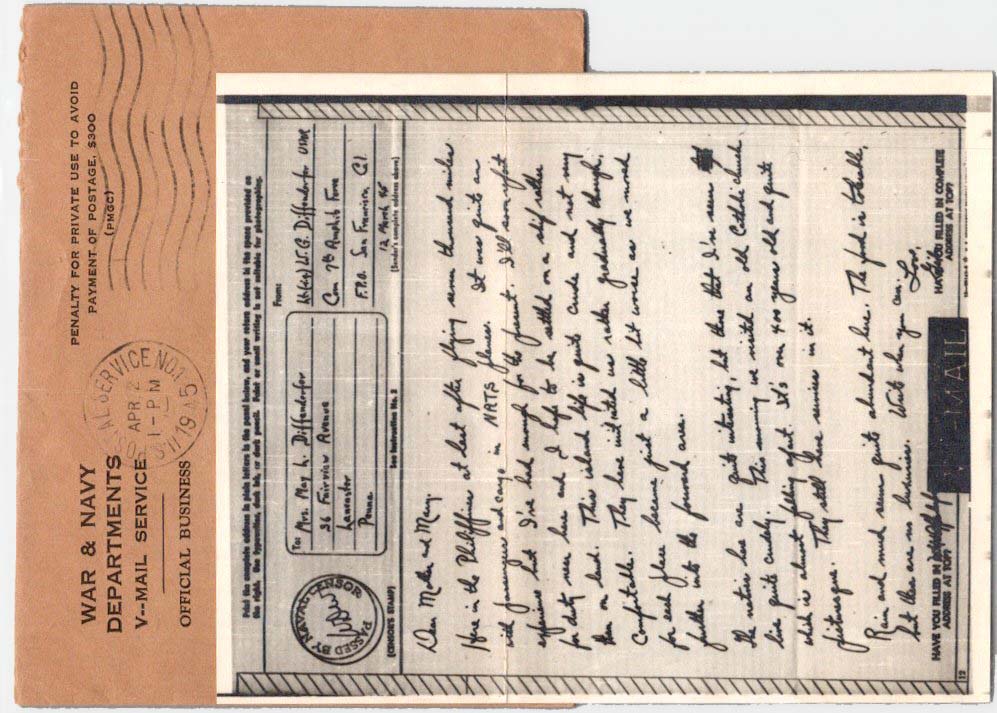 WAR & NAVY
DEPARTMENTS
V--MAIL SERVICE
OFFICIAL BUSINESS
PENALTY FOR PRIVATE USE TO AVOID
PAYMENT OF POSTAGE, $300
(PMGC)
SERVICE NO.1
APR 2
1-PM
1945
Print the complete address in plain letters in the panel below, and your return address in the space provided on
the right. Use typewriter, dark ink, or dark pencil. Faint or small writing is not suitable for photographing.
PASSED BY NAVAL CENSOR
(CENSOR'S STAMP)
To: Mrs. May L. Diffenderfer
36 Fairview Avenue
Lancaster
Penna.
See Instruction No. 2
From:
W.G. Diffenderfer USNR
Com 7th Amphib Force
F.P.O. San Francisco, Cal.
12 March 45
(Sender's complete address above)
Dear Mother and Mary:
Here in the Philippines at last after flying seven thousand miles
with passengers and cargo in NATS planes. It was quite an
experience but I've had enough for the present. I'll soon report
for duty near here and I hope to be settled on a ship rather
than on land. This island life is quite crude and not very
comfortable. They have initiated us rather gradually though,
for each place became just a little bit worse as we moved
further into the forward area.
The natives here are quite interesting, but those that I've seen
live quite crudely. This morning we visited an old Catholic church
which is almost falling apart. It's over 400 years old and quite
picturesque. They still have services in it.
Rain and mud seem quite abundant here. The food is tolerable,
but there are no luxuries. Write when you can.
Love,
HAVE YOU FILLED IN COMPLETE
ADDRESS AT TOP?
V--MAIL
HAVE YOU FILLED IN COMPLETE
ADDRESS AT TOP?
12